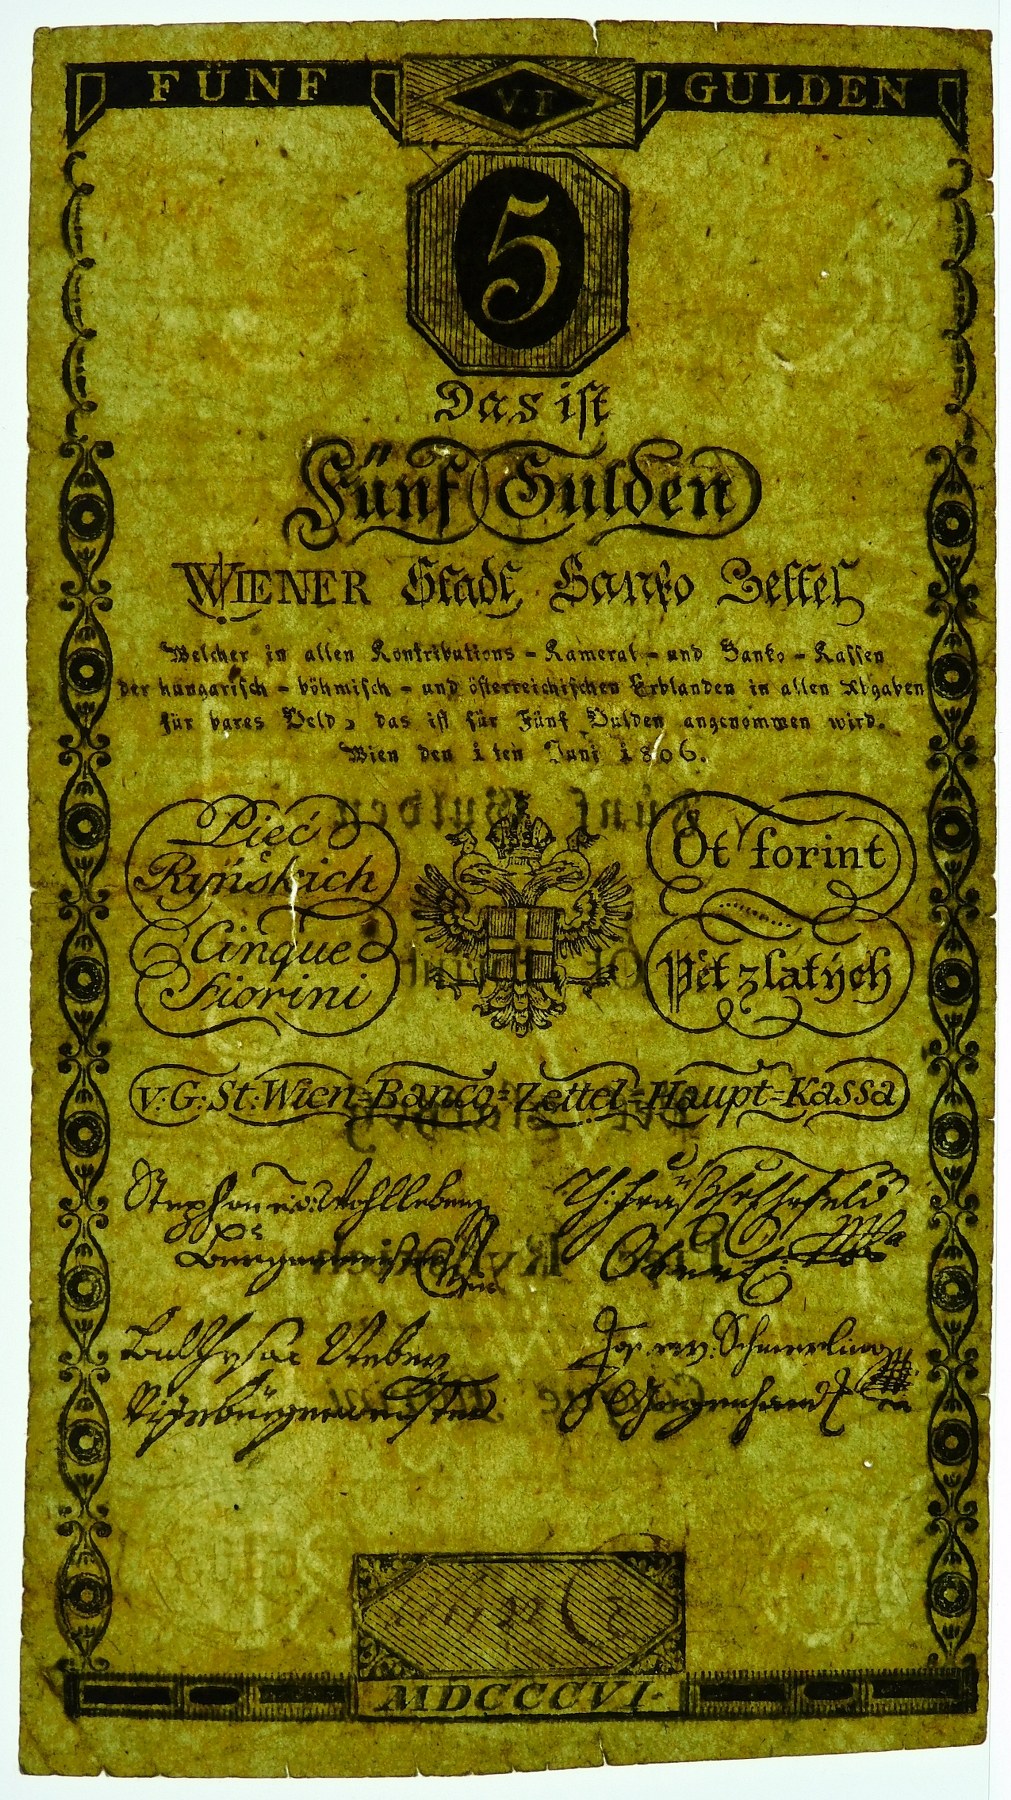 FÜNF
GULDEN
5
Das ist
Fünf Gulden
WIENER Stadt Banko Zettel
Welcher in allen Kontributions - Kameral - und Banko - Kassen
der hungarisch - böhmisch - und österreichischen Erblanden in allen Abgaben
für bares Geld, das ist für Fünf Gulden angenommen wird.
Wien den 1ten Juni 1806.
Pieć
Ryńskich
Ot forint
Cinque
Fiorini
Pět zlatých
V: G: St: Wien=Banco=Zettel=Haupt=Kassa
Stephan ed: Wohlleben
MDCCCVI.